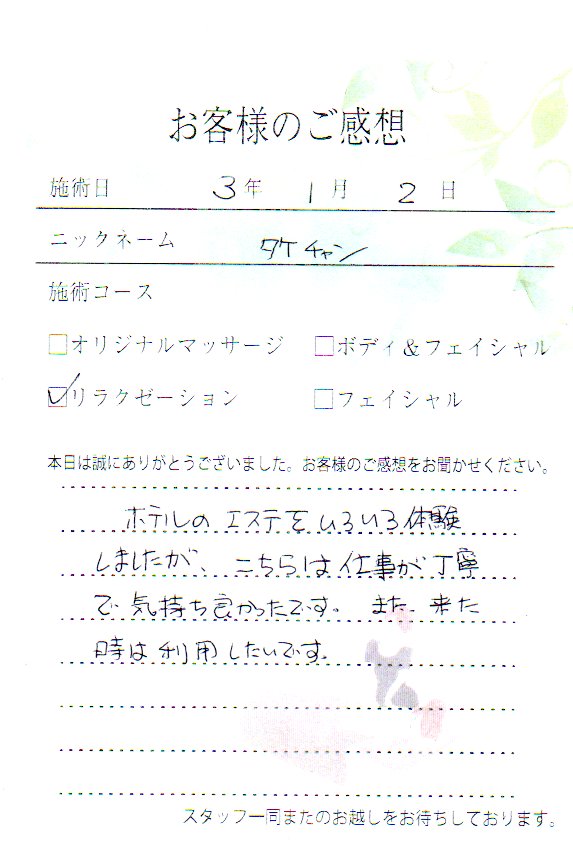 お客様のご感想
施術日 3年 1月 2日
ニックネーム タケチャン
施術コース
□オリジナルマッサージ □ボディ&フェイシャル
☑リラクゼーション □フェイシャル
本日は誠にありがとうございました。お客様のご感想をお聞かせください。
ホテルのエステをいろいろ体験
しましたが、こちらは仕事が丁寧
で気持ち良かったです。また、来た
時は利用したいです。
スタッフ一同またのお越しをお待ちしております。